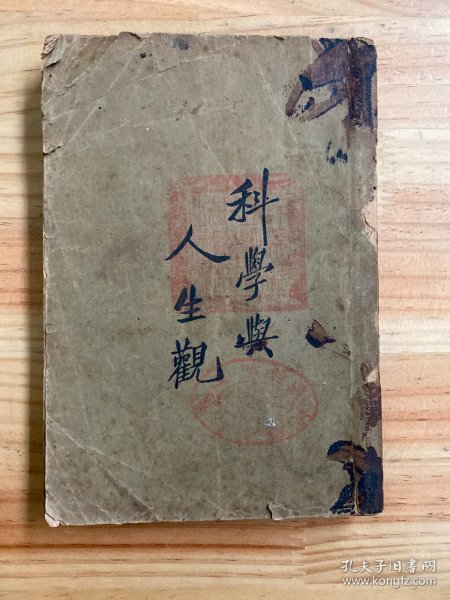 科學與
人生觀
孔夫子旧书网
www.kongfz.com